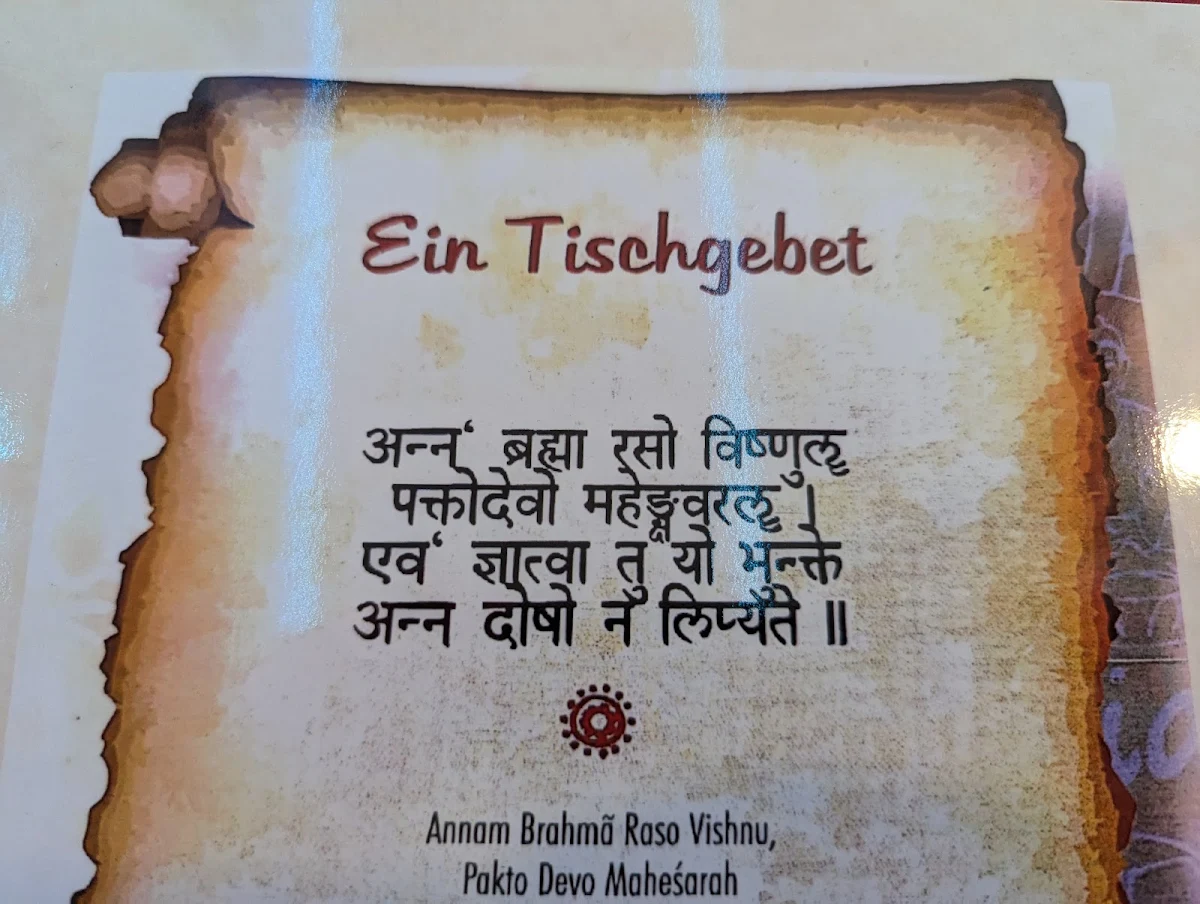 Ein Tischgebet
अन्न‘ ब्रह्मा रसो विष्णुलृ
पक्तोदेवो महेङ्मवरलृ ।
एव‘ ज्ञात्वा तु यो भुन्क्ते
अन्न दोषो न लिप्यते ॥
Annam Brahmã Raso Vishnu,
Pakto Devo Maheśarah